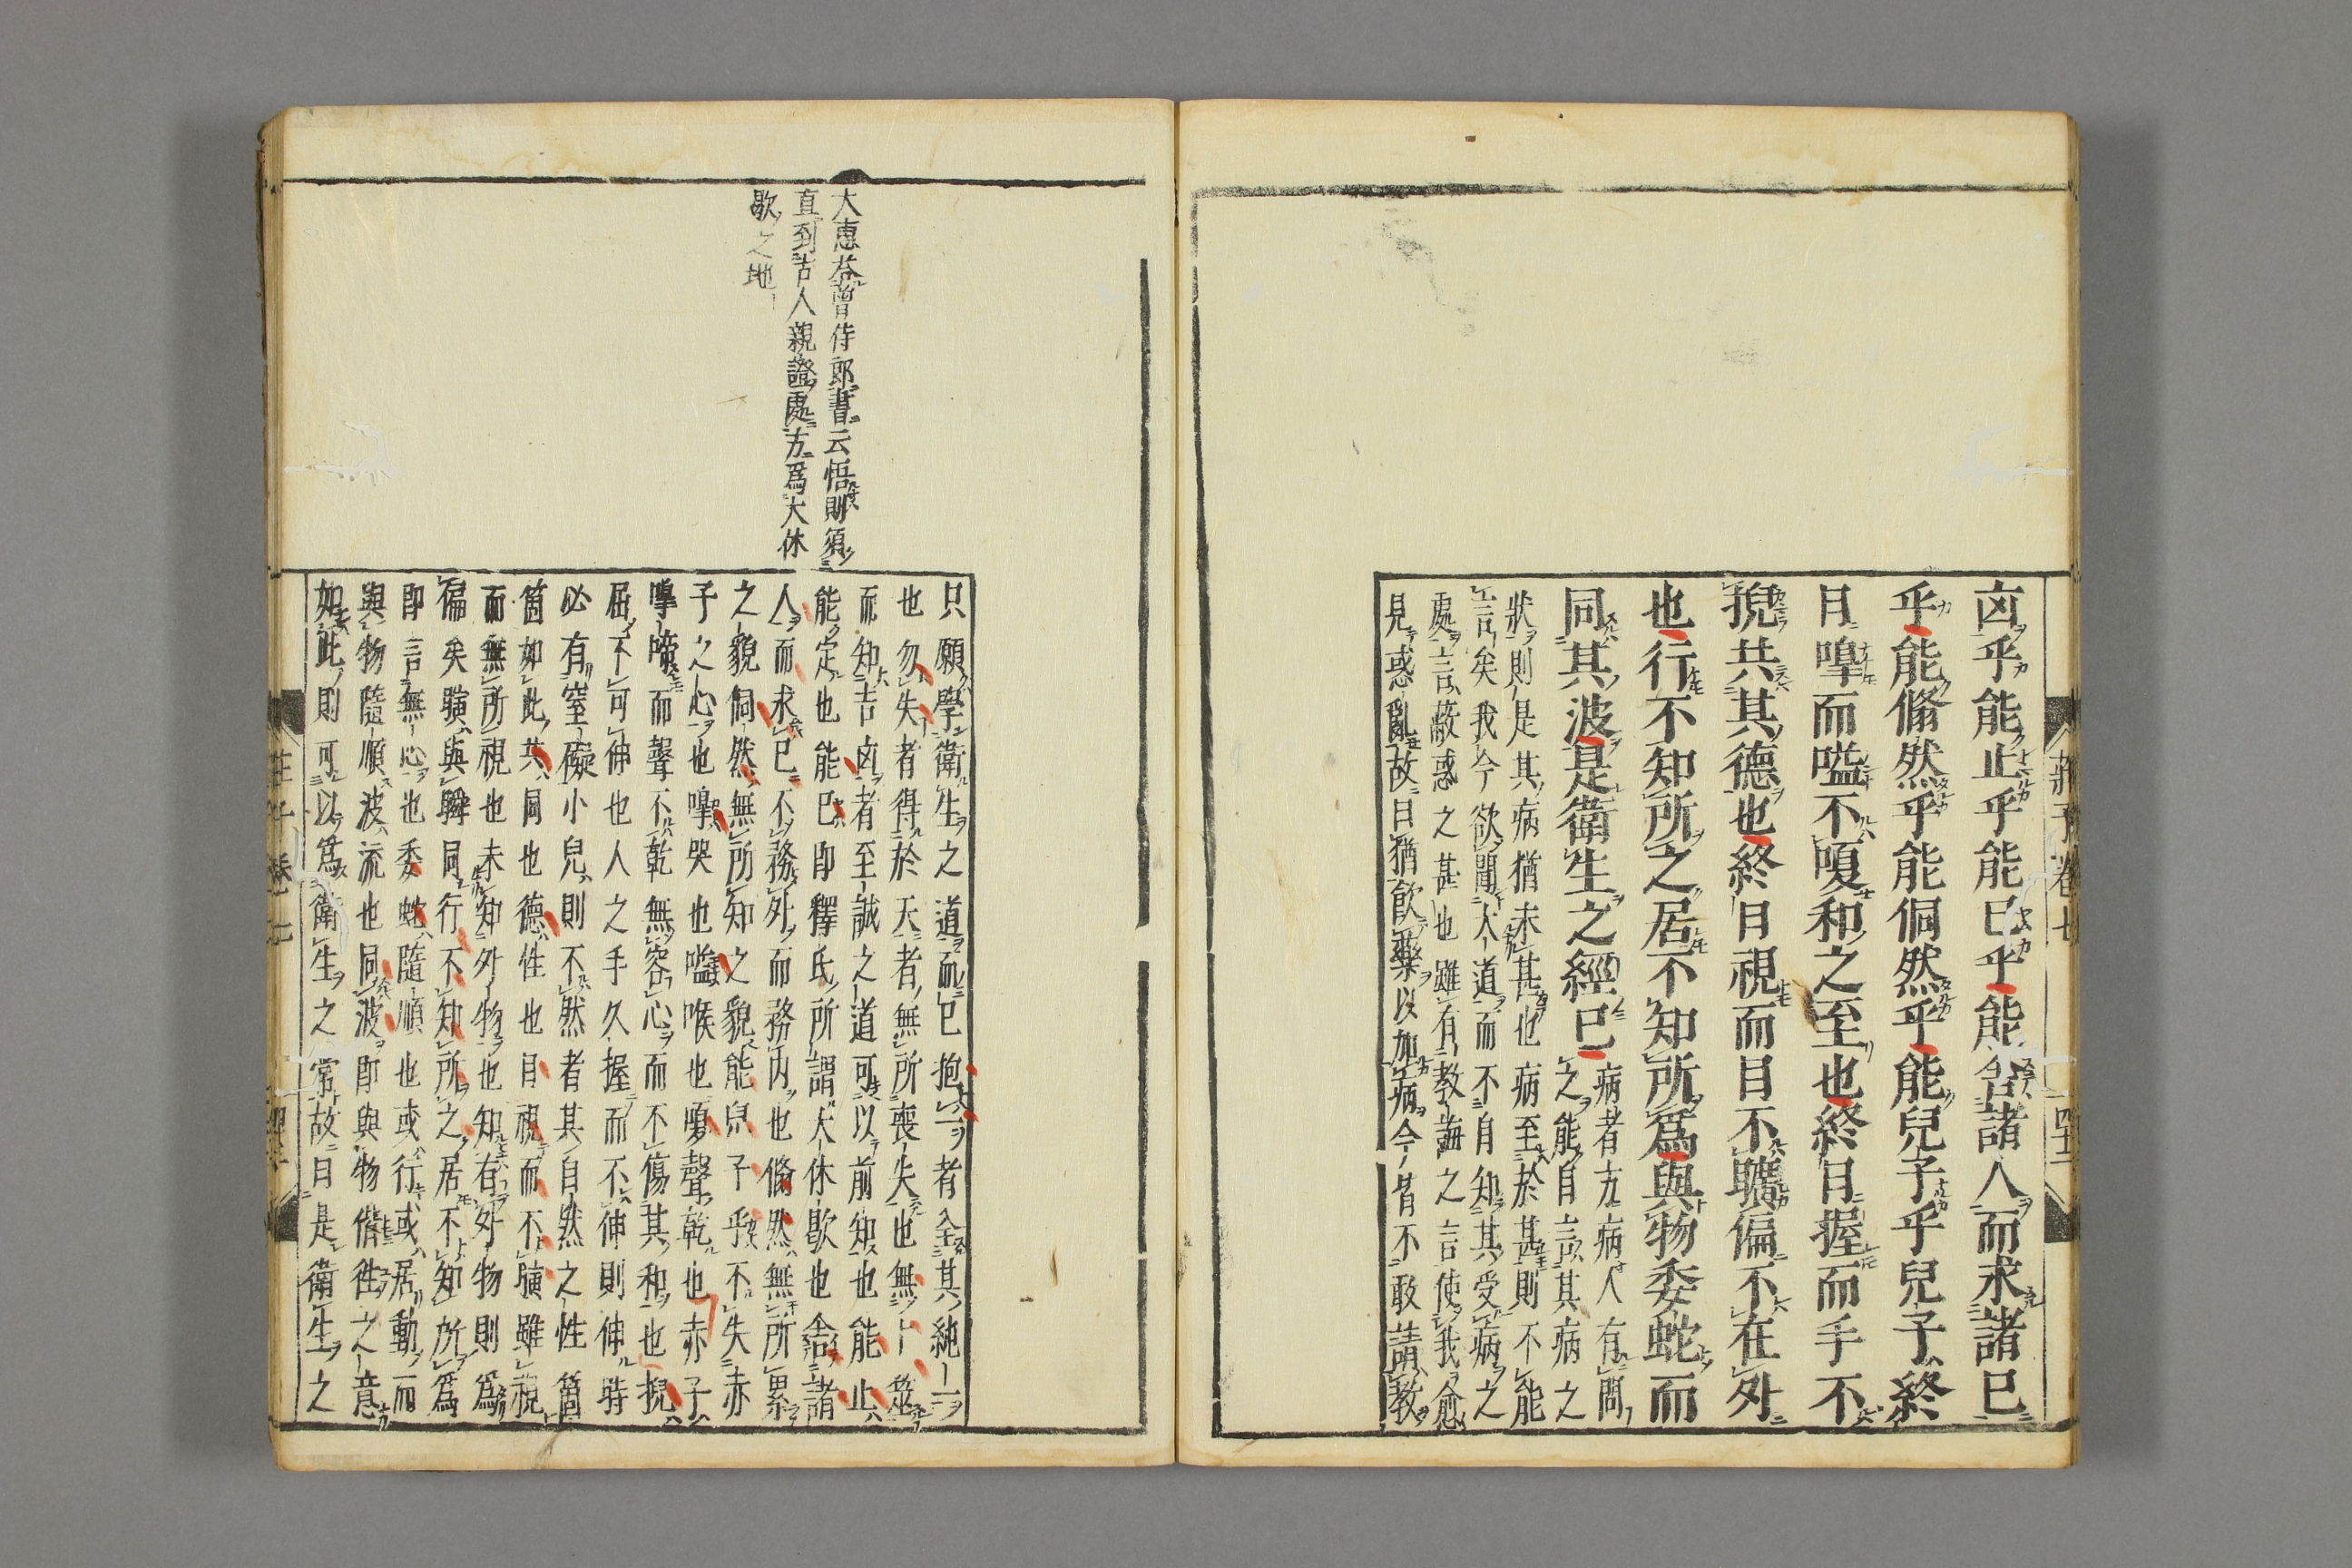 凶乎能止乎能已乎能舍諸人而求諸已
乎能翛然乎能侗然乎能兒子乎兒子終
日嘷而嗌不嗄和之至也終日握而手不
掜共其德也終日視而目不瞚偏不在外
也行不知所之居不知所爲與物委蛇而
同其波是衛生之經已
病者方病人有問
之能自言其病之
狀則是其病猶未甚也病至於甚則不能
言矣我今欲聞大道而不自知其受病之
處言蔽惑之甚也雖有教誨之言使我愈
見惑亂故曰猶飲藥以加病今皆不敢請教
莊子卷七
只願學衛生之道而已抱一者全其純一
也勿失者得於天者無所喪失也無卜筮
而知吉凶者至誠之道可以前知也能止
能定也能已即釋氏所謂大休歇也舍諸
人而求已不務外而務內也翛然無所累
之貌侗然無所知之貌能兒子乎不失赤
子之心也嘷哭也嗌喉也嗄聲乾也赤子
嘷啼而聲不乾無容心而不傷其和也掜
屈不可伸也人之手久握而不伸則伸時
必有窒礙小兒則不然者其自然之性箇
箇如此共同也德性也目視而不瞚雖視
而無所視也未知外物也知有外物則爲
偏矣瞚與瞬同行不知所之居不知所爲
即言無心也委蛇隨順也或行或居動而
與物隨順波流也同波即與物偕往之意
如此則可以爲衛生之常故曰是衛生之
大惠荅曾侍郎書云悟則須
直到古人親證處方爲大休
歇之地
莊子卷七